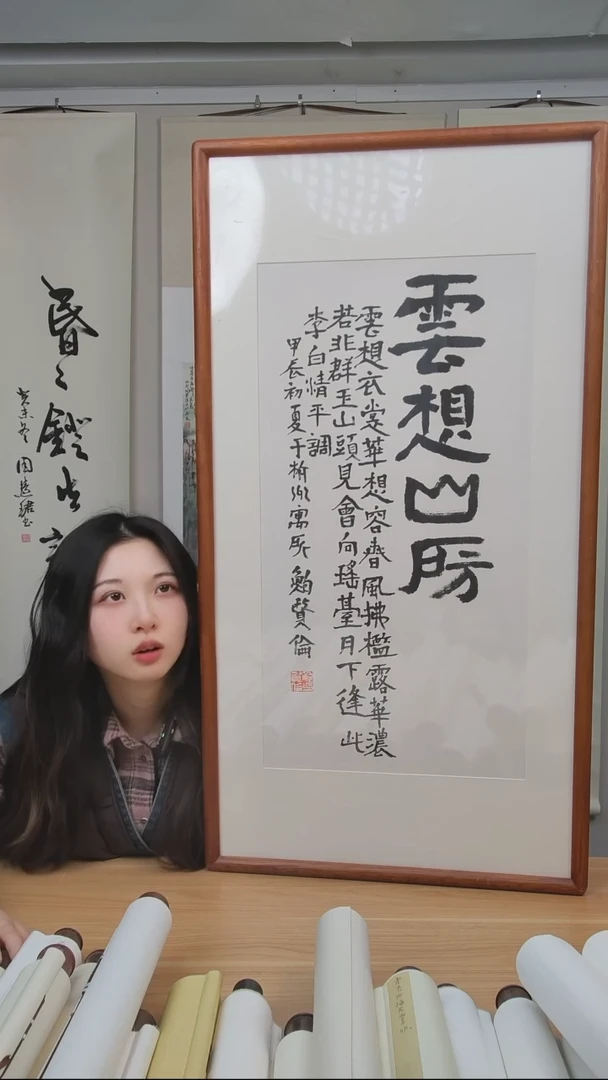 雲想山房
雲想衣裳華想容春風拂檻露華濃
若非群玉山頭見會向瑤臺月下逢此
李白情平調
甲辰初夏于寓所賢倫
昬〻鐙火
癸未冬周慧珺书